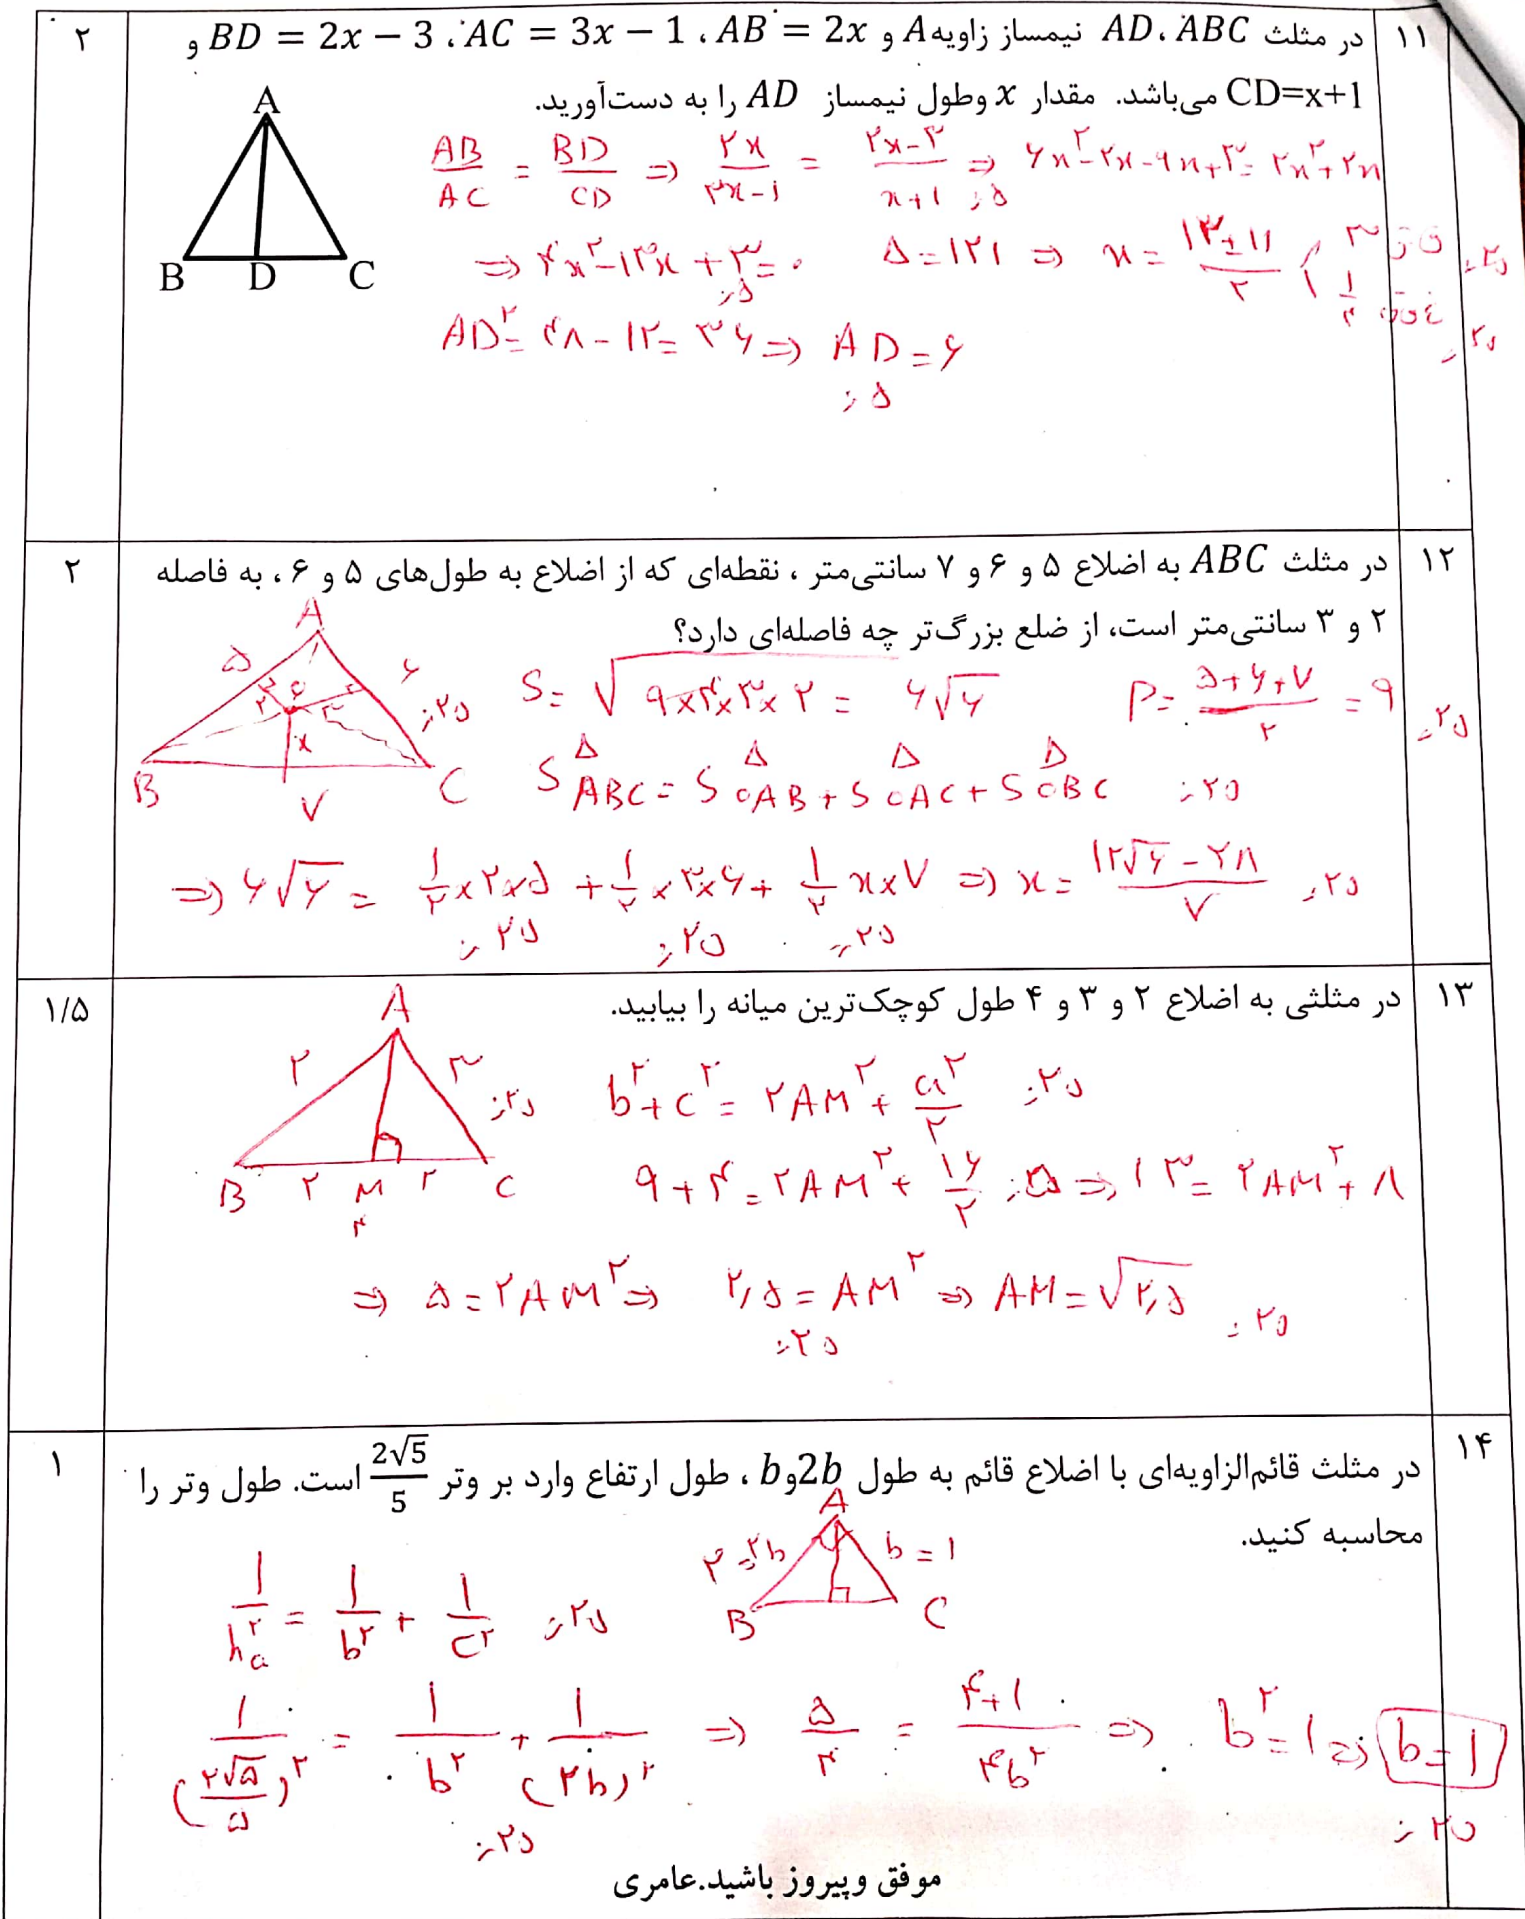 ۱۱
در مثلث ABC، AD نیمساز زاویه A و AB = 2x ، AC = 3x − 1 ، BD = 2x − 3 و
۲
CD=x+1 می‌باشد. مقدار x وطول نیمساز AD را به دست‌آورید.
A
B D C
AB/AC = BD/CD ⇒ ۲x/۳x-۱ = ۲x-۳/x+۱ ⇒ ۶x²-۲x-۹x+۳=۲x²+۲x
⇒ ۴x²-۱۳x+۳=۰ Δ=۱۲۱ ⇒ x=
۳ ق ق
غ ق ق
AD²=۴۸-۱۲=۳۶ ⇒ AD=۶
۱۲
در مثلث ABC به اضلاع ۵ و ۶ و ۷ سانتی‌متر ، نقطه‌ای که از اضلاع به طول‌های ۵ و ۶ ، به فاصله
۲
۲ و ۳ سانتی‌متر است، از ضلع بزرگ‌تر چه فاصله‌ای دارد؟
A
۵ ۶
x
B ۷ C
S=√۹×۴×۳×۲ = ۶√۶ P=۵+۶+۷/۲ = ۹
S ABC = S OAB + S OAC + S OBC
⇒ ۶√۶ = ۱/۲×۲×۵ + ۱/۲×۳×۶ + ۱/۲ x×۷ ⇒ x= ۱۲√۶-۲۸/۷
۱۳
در مثلثی به اضلاع ۲ و ۳ و ۴ طول کوچک‌ترین میانه را بیابید.
۱/۵
A
۲ ۳
B ۲ M ۲ C
۴
b²+c²=۲AM²+a²/۲
۹+۴=۲AM²+۱۶/۲ ⇒ ۱۳=۲AM²+۸
⇒ ۵=۲AM² ⇒ ۲,۵=AM² ⇒ AM=√۲,۵
۱۴
در مثلث قائم‌الزاویه‌ای با اضلاع قائم به طول b و 2b ، طول ارتفاع وارد بر وتر 2√5/5 است. طول وتر را
۱
محاسبه کنید.
A
۲=۲b b=۱
B C
۱/h²a = ۱/b² + ۱/c²
۱/(۲√۵/۵)² = ۱/b² + ۱/(۲b)² ⇒ ۵/۴ = ۴+۱/۴b² ⇒ b²=۱ ⇒ b=۱
موفق وپیروز باشید.عامری